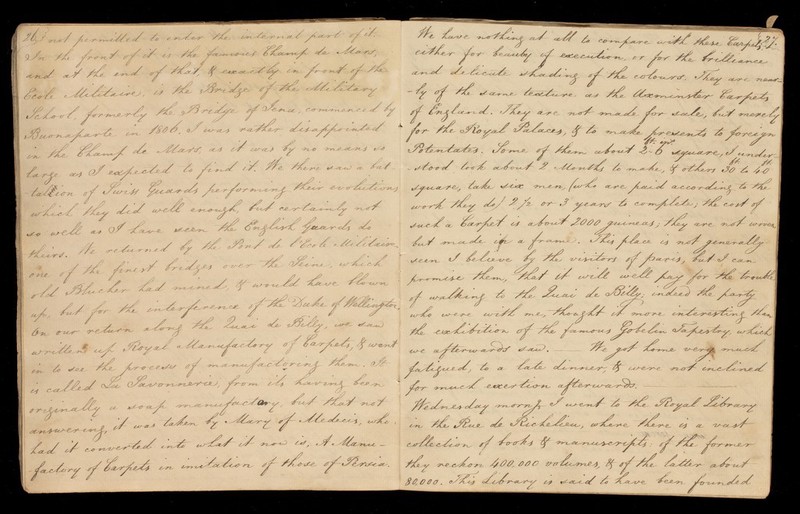 26) not permitted to enter the internal part of it.
In the front of it is the famous Champ de Mars,
and at the end of that, & exactly in front of the
Ecole Militaire, is the Bridge of the Military
School, formerly the Bridge of Jena, commenced by
Buonaparte in 1806. I was rather disappointed
in the Champ de Mars, as it was by no means so
large as I expected to find it. We there saw a bat-
-talion of Swiss Guards performing their evolutions
which they did well enough, but certainly not
so well as I have seen the English Guards do
theirs. We returned by the Pont de l'Ecole Militaire,
one of the finest bridges over the Seine, which
old Blucher had mined, & would have blown
up, but for the interference of the Duke of Wellington.
On our return along the Quai de Billy, we saw
written up Royal Manufactory of Carpets, & went
in to see the process of manufacturing them. It
is called La Savonnerie, from its having been
originally a soap manufactory, but that not
answering, it was taken by Mary of Medecis, who
had it converted into what it now is, A Manu-
-factory of Carpets in imitation of those of Persia.
27.
We have nothing at all to compare with these Carpets,
either for beauty of execution, or for the brilliance
and delicate shading of the colours. They are near-
-ly of the same texture as the Axminster Carpets
of England. They are not made for sale, but merely
for the Royal Palaces, & to make presents to foreign
Potentates. Some of them about 2 ft. 6 square, I under-
-stood took about 2 Months to make, & others 30 ft to 40 ft
square, take six men, (who are paid according to the
work they do) 2½ or 3 years to complete; the cost of
such a Carpet is about 2000 guineas; they are not woven
but made in a frame. This place is not generally
seen I believe by the visitors of Paris, but I can
promise them, that it will well pay for the trouble
of walking to the Quai de Billy, indeed the party
who were with me, thought it more interesting than
the exhibition of the famous Gobelin Tapestry which
we afterwards saw. We got home very much
fatigued, to a late dinner, & were not inclined
for much exertion afterwards.
Wednesday morng I went to the Royal Library
in the Rue de Richelieu, where there is a vast
collection of books & manuscripts of the former
they reckon 400.000 volumes, & of the latter about
80.000. This Library is said to have been founded